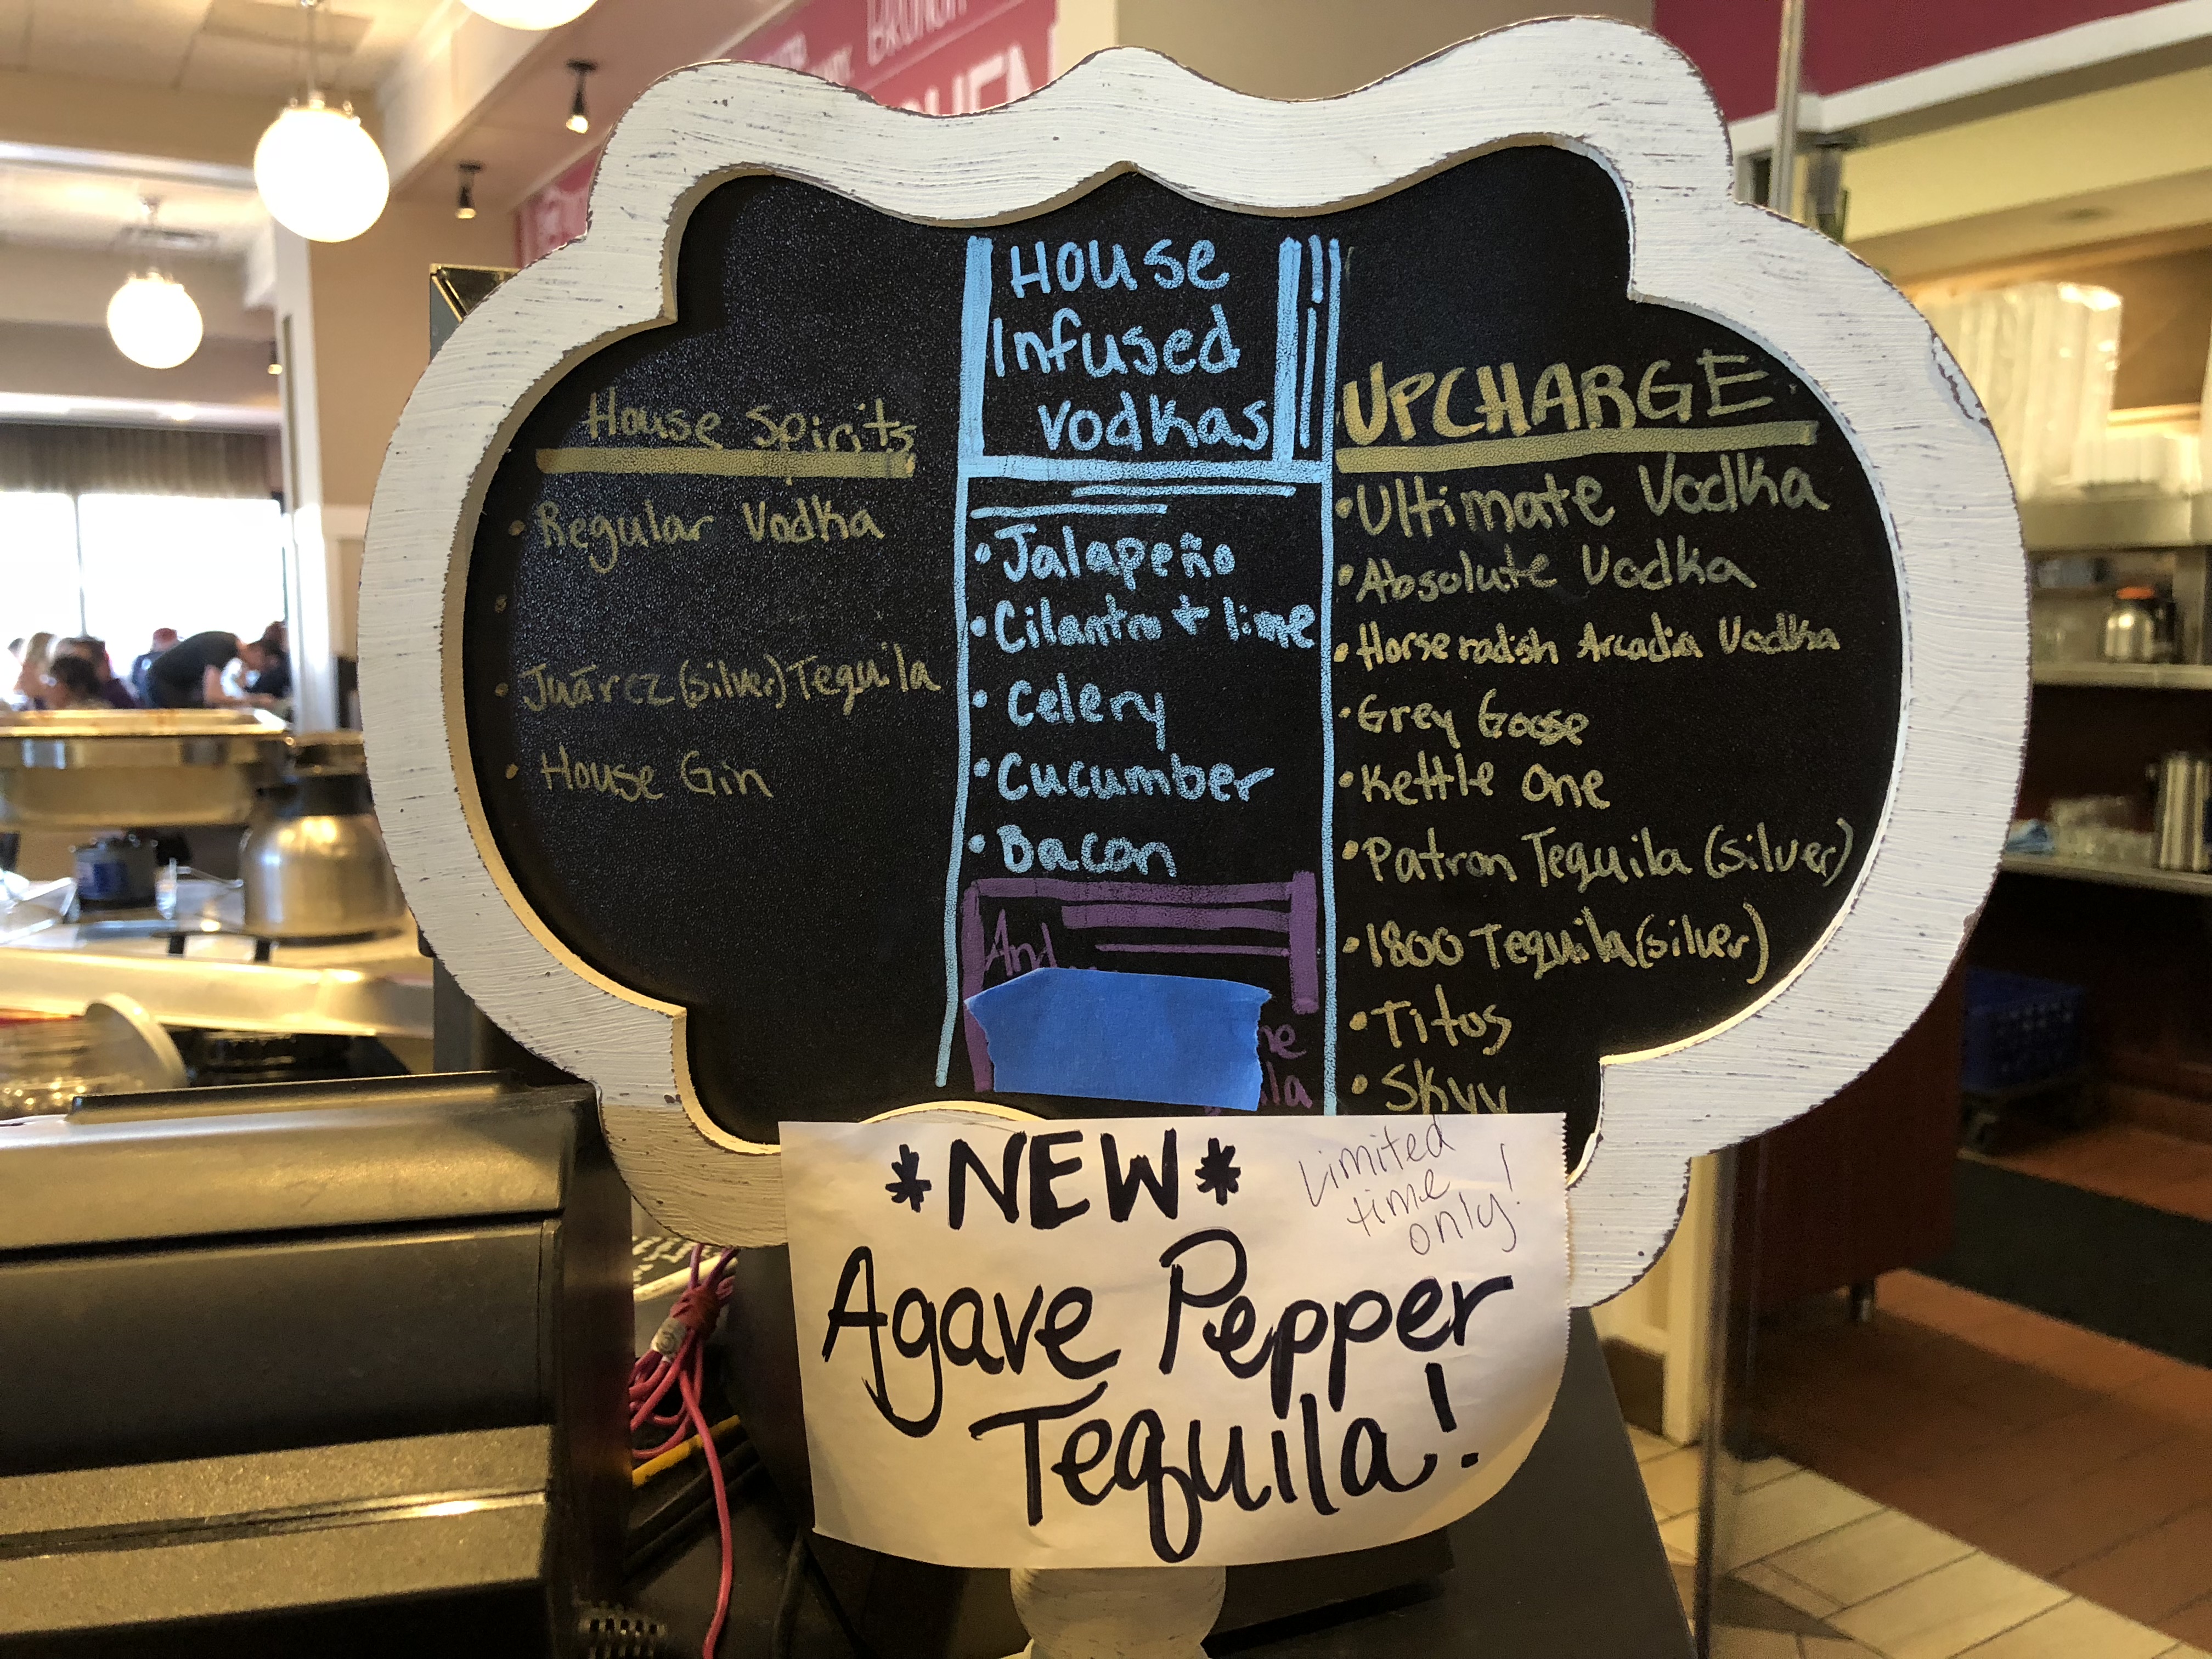 House Spirits
• Regular Vodka
•
• Juárez (silver) Tequila
• House Gin
House
Infused
Vodkas
• Jalapeño
• Cilantro + lime
• Celery
• Cucumber
• Bacon
And
UPCHARGE
• Ultimate Vodka
• Absolute Vodka
• Horseradish Arcadia Vodka
• Grey Goose
• Kettle One
• Patron Tequila (silver)
• 1800 Tequila (silver)
• Titos
• Skyy
*NEW*
Limited
time
only!
Agave Pepper
Tequila!